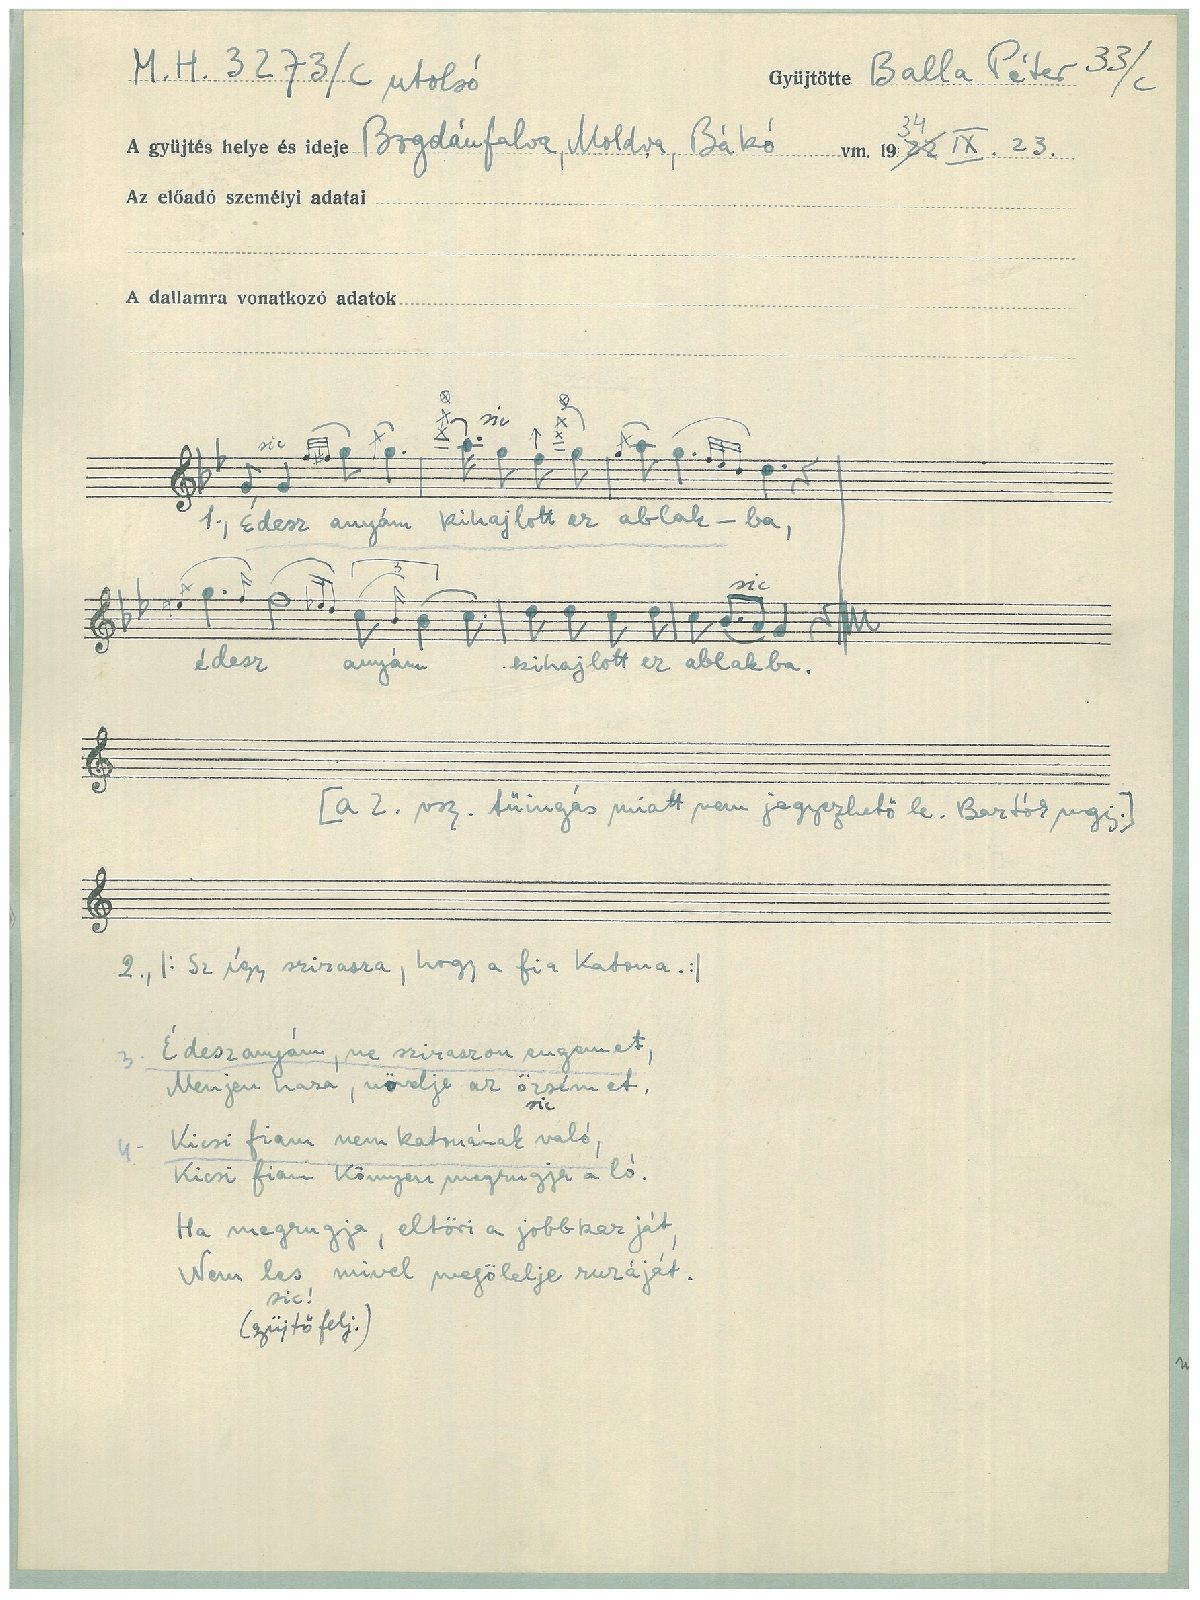 M.H. 3273/c utolsó
Gyüjtötte Balla Péter 33/c
A gyüjtés helye és ideje Bogdánfalva, Moldva, Bákó vm. 19 34 IX. 23.
Az előadó személyi adatai
A dallamra vonatkozó adatok
sic sic
1., Édesz anyám kihajlott ez ablak – ba,
3 sic
édesz anyám kihajlott ez ablakba.
[a 2. vsz. tűingás miatt nem jegyezhető le. Bartók megj.]
2., |: Sz így sziraszsza, hogy a fia katona. :|
3. Édeszanyám, ne sziraszon engemet,
Menjen haza, növelje az özsémet.
sic
4. Kicsi fiam nem katonának való,
Kicsi fiam könnyen megrugja a ló.
Ha megrugja, eltöri a jobb karját,
Nem les mivel megölelje ruzáját.
sic!
(gyüjtő felj.)